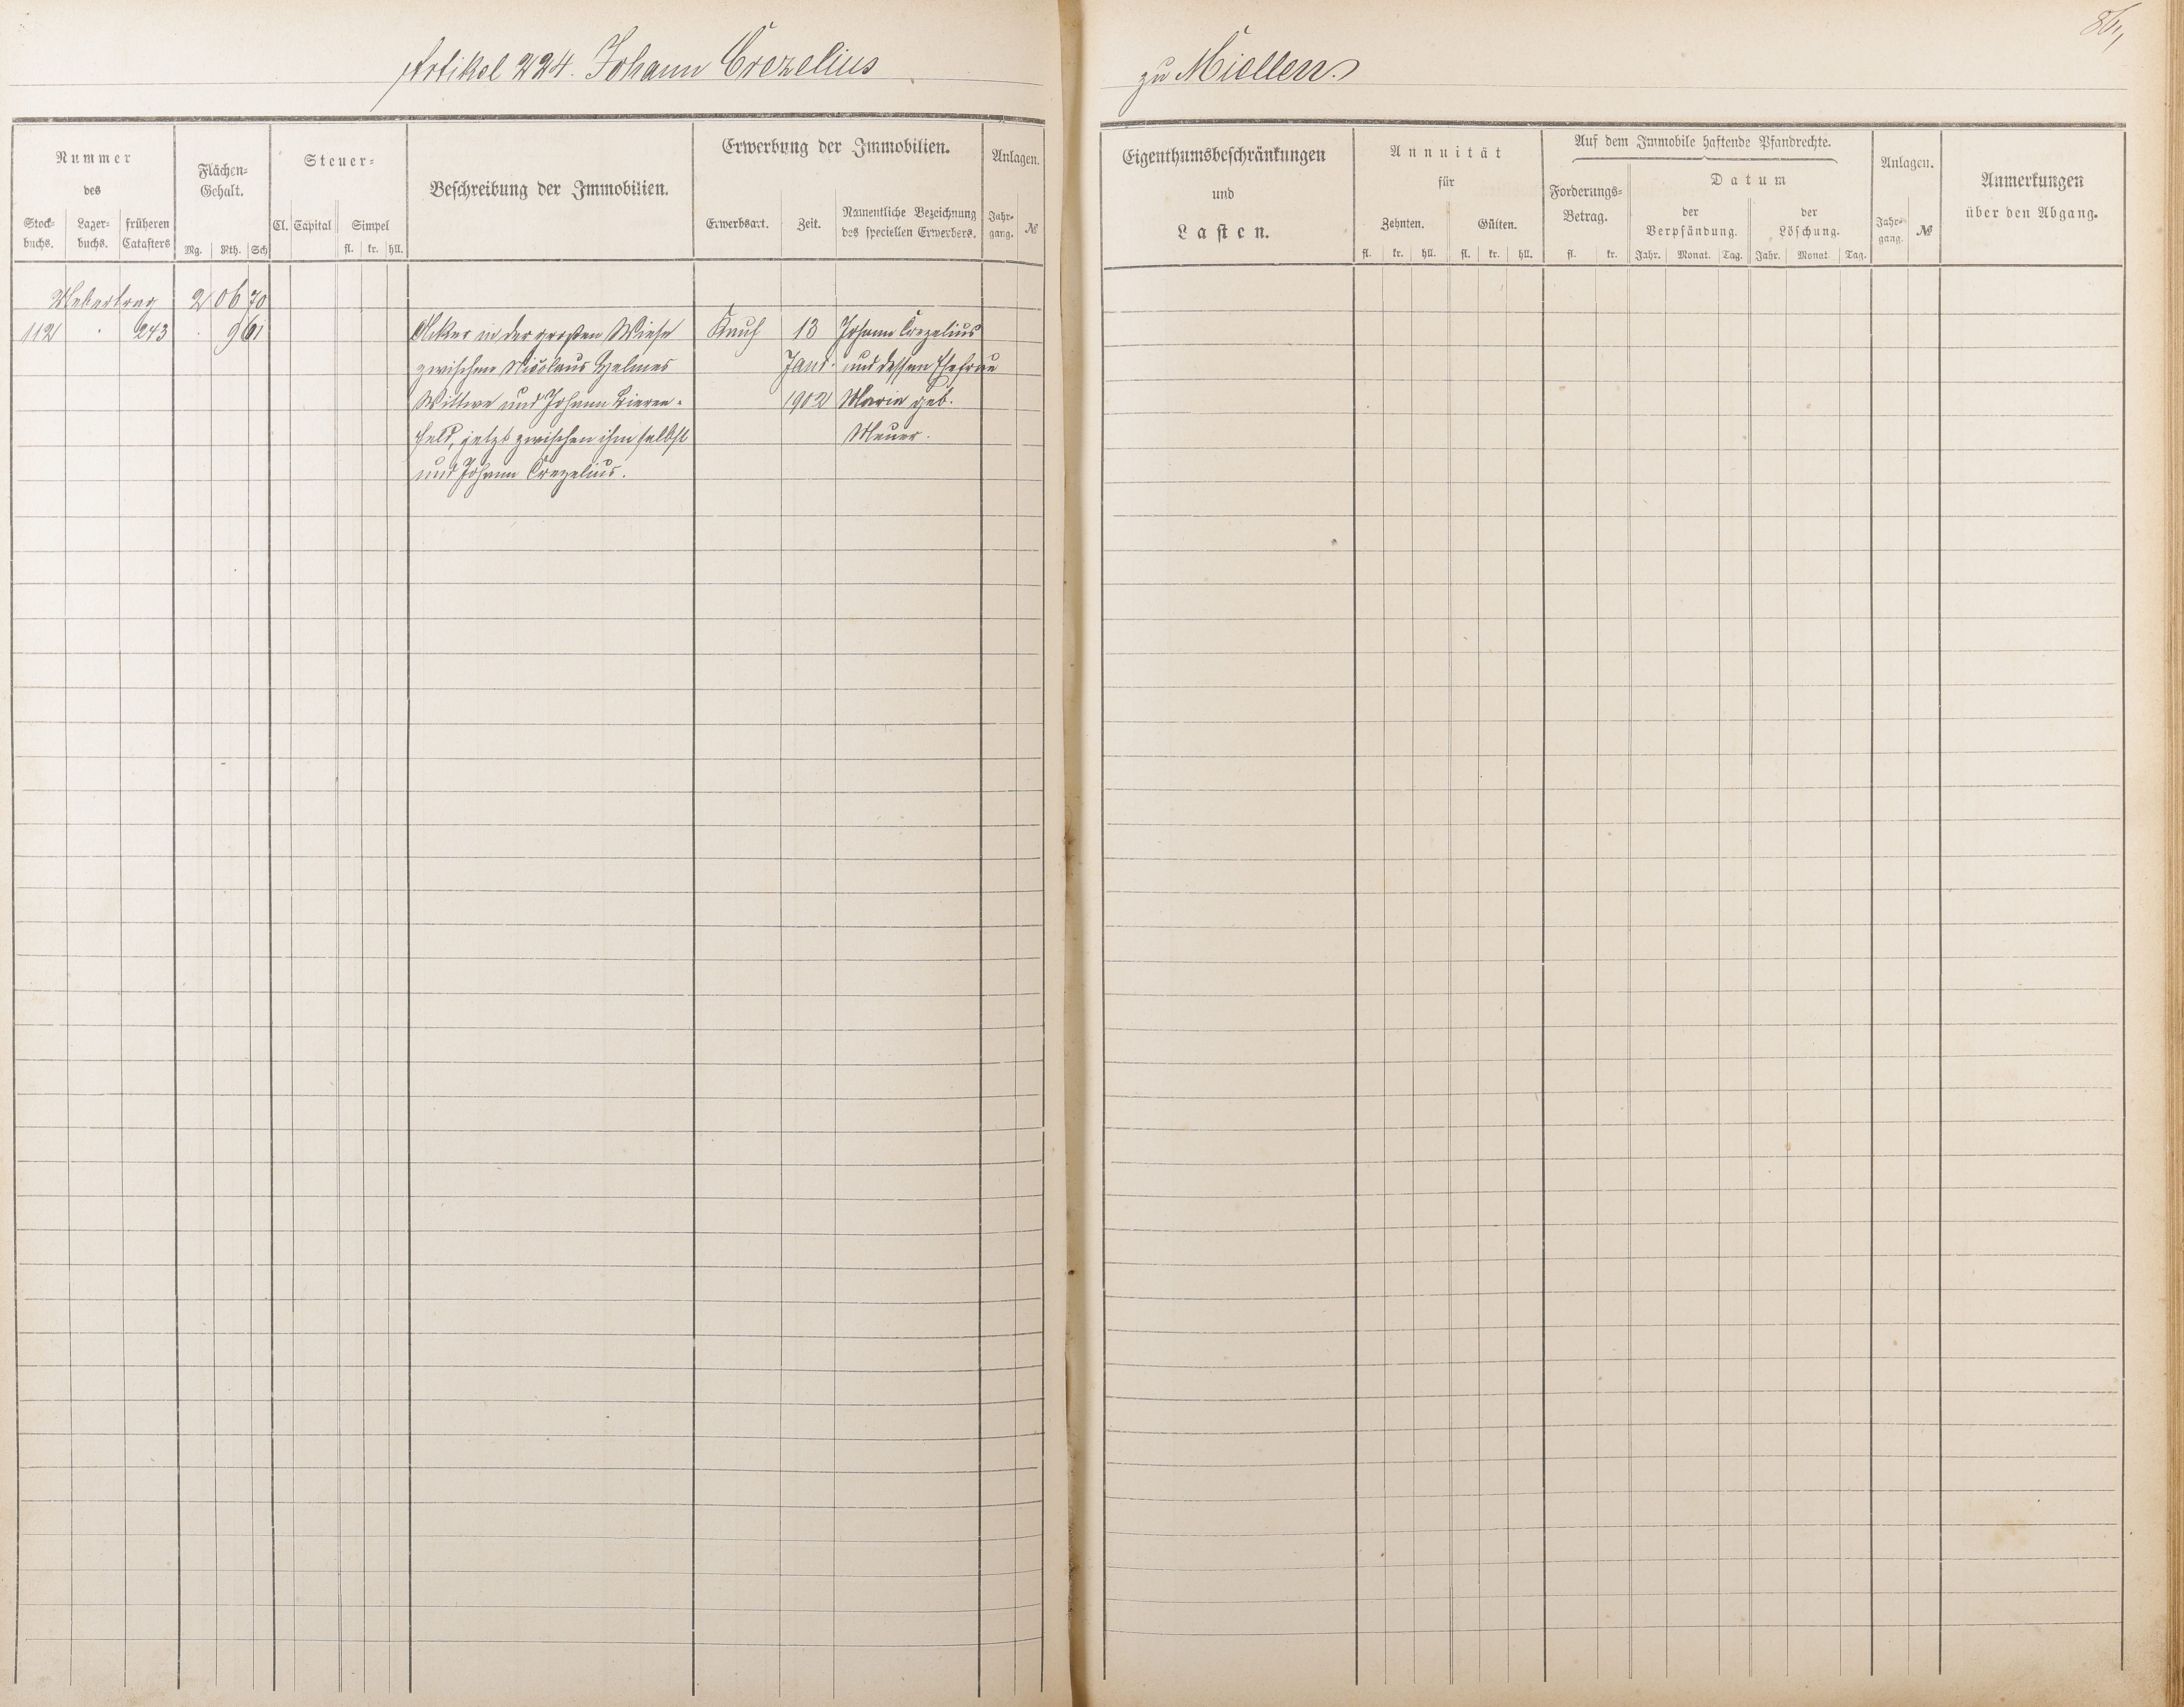 86,,
Artikel 224. Johann Crezelius zu Miellen.
Nummer
des
Stock-
buchs.
Lager-
buchs.
früheren
Catasters
Flächen-
Gehalt.
Mg. Rth. Sch
Steuer-
Cl. Capital Simpel
fl. kr. hll.
Beschreibung der Immobilien.
Erwerbung der Immobilien.
Erwerbsart. Zeit.
Namentliche Bezeichnung
des speciellen Erwerbers.
Anlagen.
Jahr-
gang.
№
Eigenthumsbeschränkungen
und
Lasten.
Annuität
für
Zehnten. Gülten.
fl. kr. hll. fl. kr. hll.
Auf dem Immobile haftende Pfandrechte.
Forderungs-
Betrag.
fl. kr.
Datum
der
Verpfändung.
Jahr. Monat. Tag.
der
Löschung.
Jahr. Monat. Tag.
Anlagen.
Jahr-
gang.
№
Anmerkungen
über den Abgang.
Uebertrag 2 06 70
112 . 243 . 9 61 Acker in der großen Wiese Kauf 13 Johann Crezelius
zwischen Nicolaus Helmes Janr. und dessen Ehefrau
Wittwe und Johann Bieren- 1902 Maria geb.
feld, jetzt zwischen ihm selbst Meuer.
und Johann Crezelius.